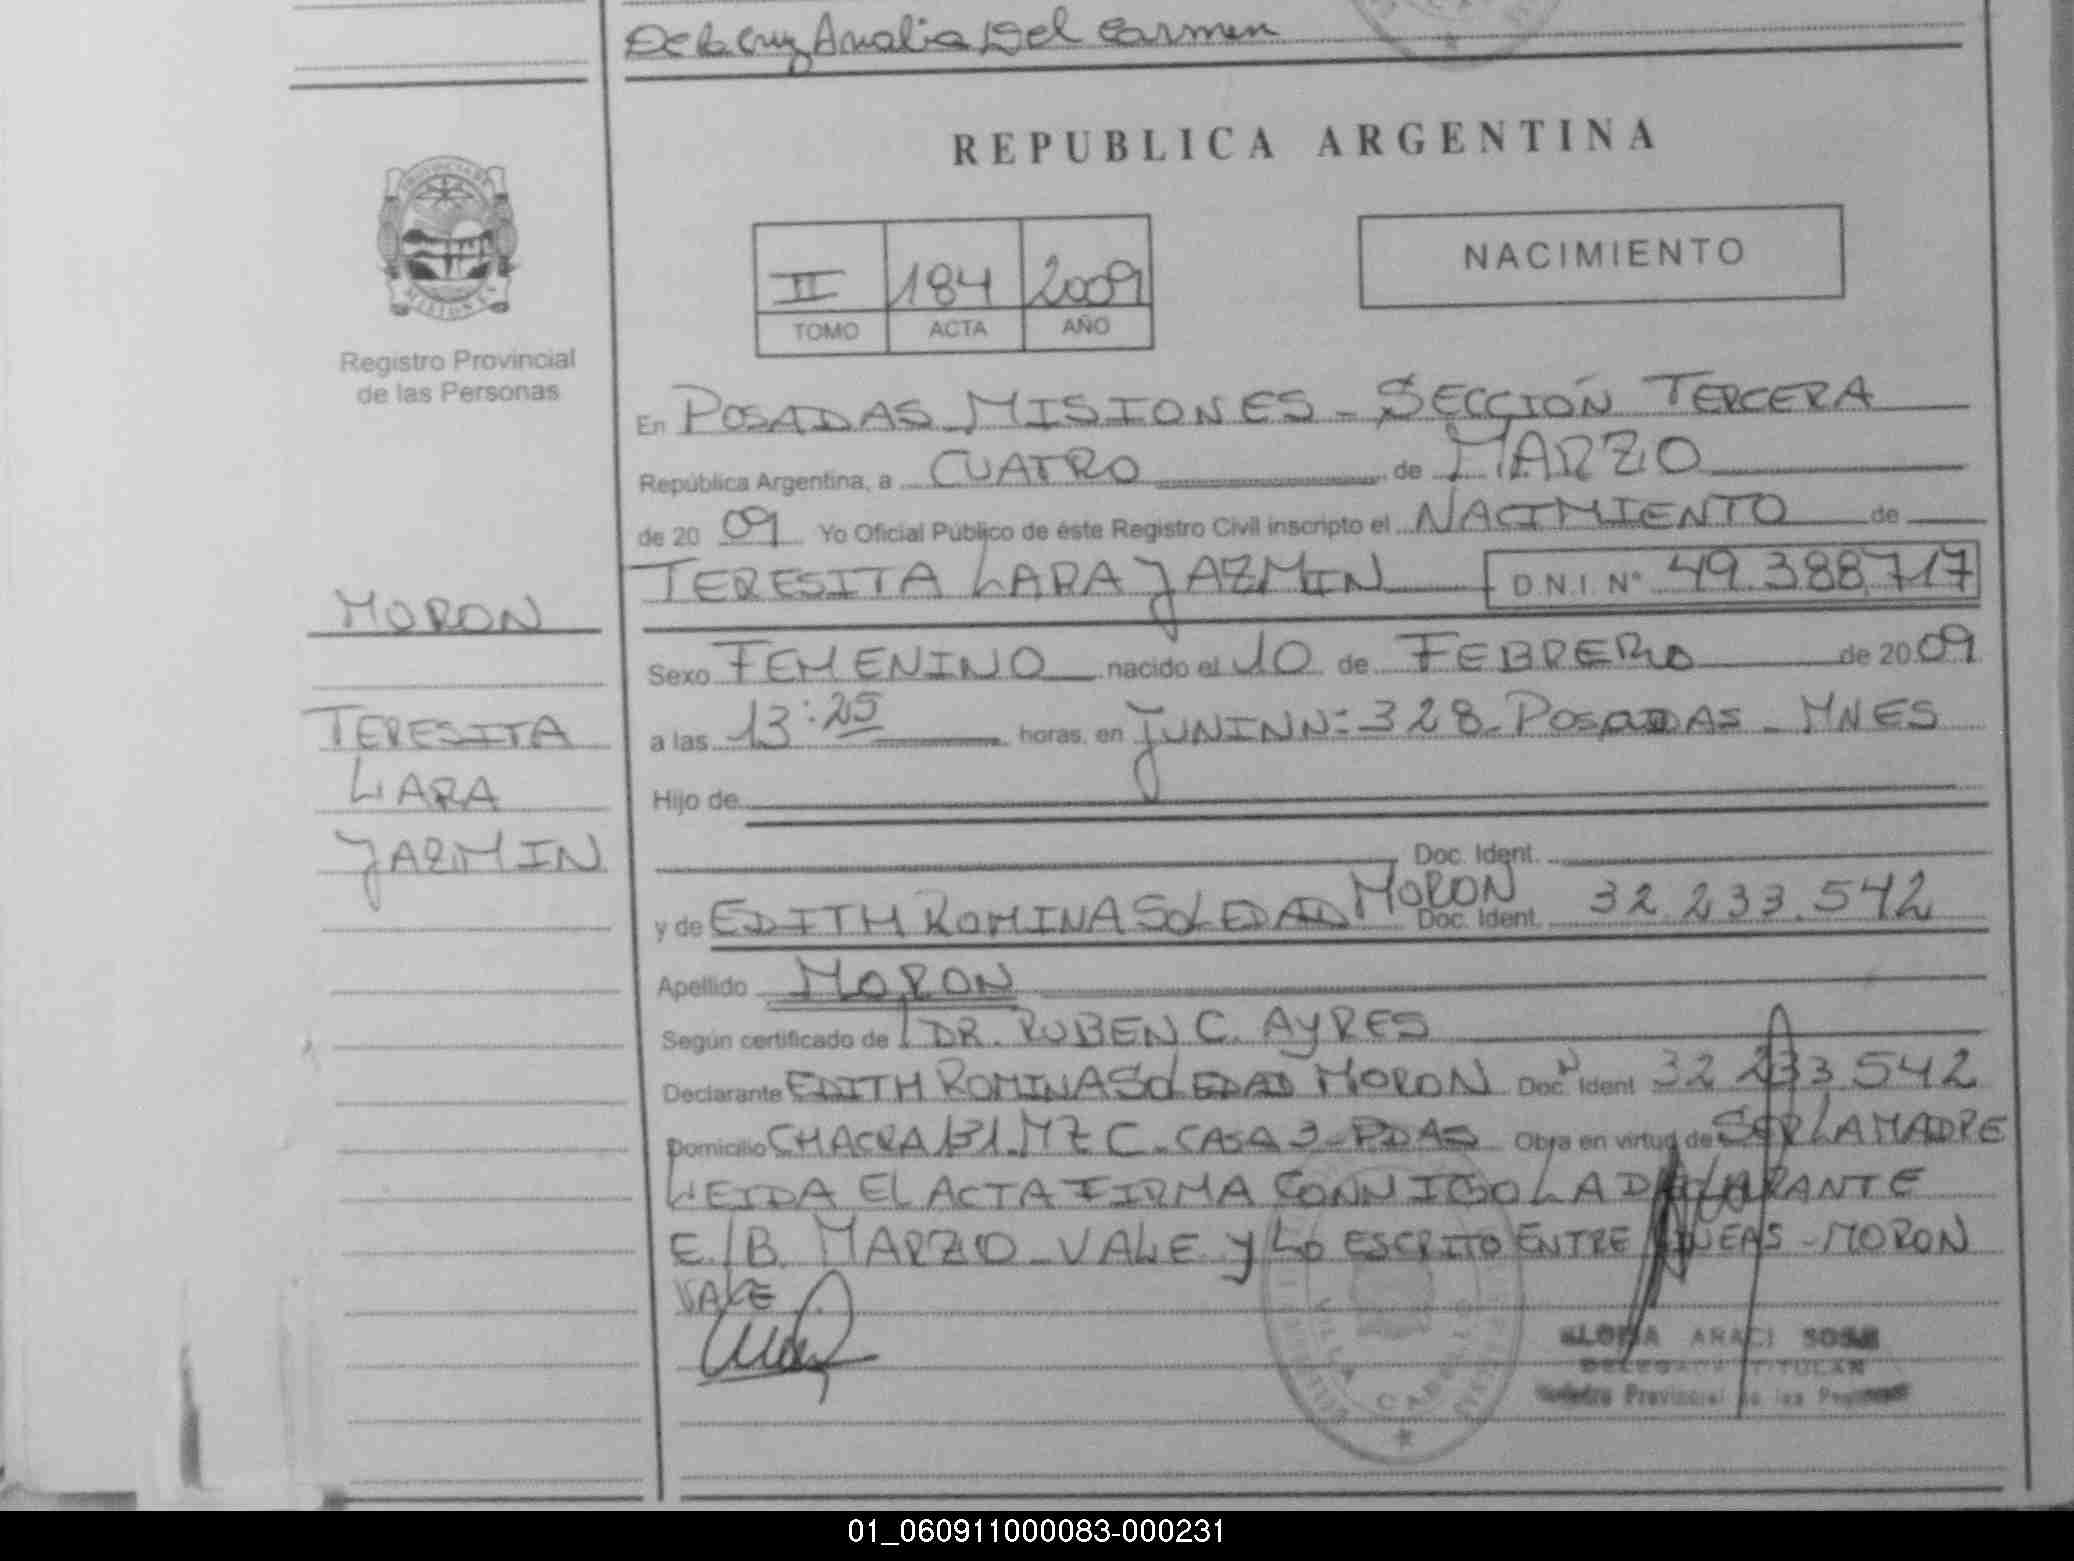 De la Cruz Analia Del Carmen
REPUBLICA ARGENTINA
II 184 2009
TOMO ACTA AÑO
NACIMIENTO
Registro Provincial
de las Personas
En POSADAS MISIONES - SECCIÓN TERCERA
República Argentina, a CUATRO de MARZO
de 20 09 Yo Oficial Público de éste Registro Civil inscripto el NACIMIENTO de
TERESITA LARA JAZMIN D.N.I. Nº 49.388.717
MORON
TERESITA
LARA
JAZMIN
Sexo FEMENINO nacido el 10 de FEBRERO de 20 09
a las 13:25 horas, en JUNIN N= 328 - POSADAS - MNES
Hijo de
Doc. Ident.
y de EDITH ROMINA SOLEDAD MORON Doc. Ident. 32.233.542
Apellido MORON
Según certificado de DR. RUBEN C. AYRES
Declarante EDITH ROMINA SOLEDAD MORON Doc. Ident 32 233 542
Domicilio CHACRA 131 MZ C - CASA 3 - PDAS Obra en virtud de SER LA MADRE
LEIDA EL ACTA FIRMA CONMIGO LA DECLARANTE
E/B. MARZO - VALE y LO ESCRITO ENTRE LINEAS - MORON
VALE
VILLA CABELLO
ARACI SOSA
DELEGADA TITULAR
Registro Provincial de las Personas
01_060911000083-000231